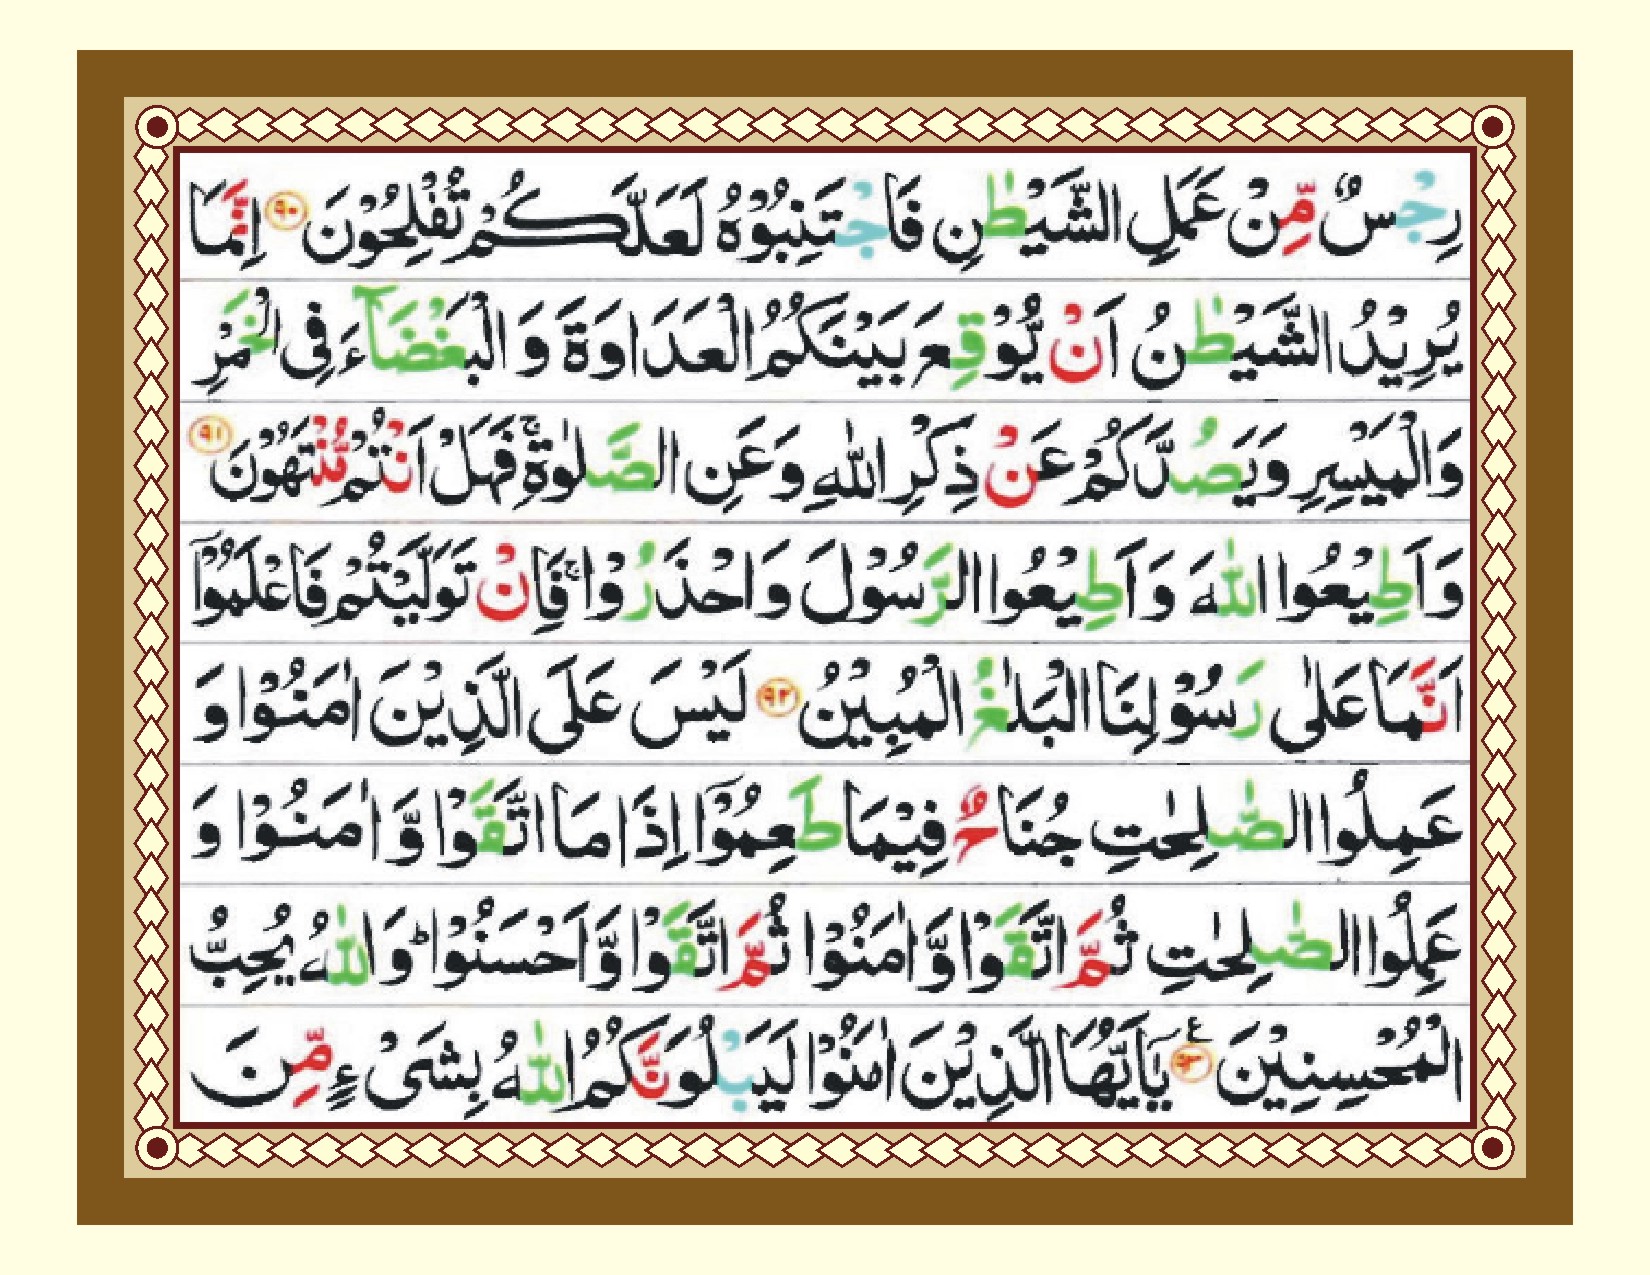 رِجْسٌ مِّنْ عَمَلِ الشَّيْطٰنِ فَاجْتَنِبُوْهُ لَعَلَّكُمْ تُفْلِحُوْنَ ﴿۹۰﴾ اِنَّمَا
يُرِيْدُ الشَّيْطٰنُ اَنْ يُّوْقِعَ بَيْنَكُمُ الْعَدَاوَةَ وَ الْبَغْضَآءَ فِى الْخَمْرِ
وَالْمَيْسِرِ وَيَصُدَّكُمْ عَنْ ذِكْرِ اللّٰهِ وَعَنِ الصَّلٰوةِ ۚ فَهَلْ اَنْتُمْ مُّنْتَهُوْنَ ﴿۹۱﴾
وَ اَطِيْعُوا اللّٰهَ وَ اَطِيْعُوا الرَّسُوْلَ وَ احْذَرُوْا ۚ فَاِنْ تَوَلَّيْتُمْ فَاعْلَمُوْٓا
اَنَّمَا عَلٰى رَسُوْلِنَا الْبَلٰغُ الْمُبِيْنُ ﴿۹۲﴾ لَيْسَ عَلَى الَّذِيْنَ اٰمَنُوْا وَ
عَمِلُوا الصّٰلِحٰتِ جُنَاحٌ فِيْمَا طَعِمُوْٓا اِذَا مَا اتَّقَوْا وَّ اٰمَنُوْا وَ
عَمِلُوا الصّٰلِحٰتِ ثُمَّ اتَّقَوْا وَّ اٰمَنُوْا ثُمَّ اتَّقَوْا وَّ اَحْسَنُوْا ؕ وَ اللّٰهُ يُحِبُّ
الْمُحْسِنِيْنَ ﴿۹۳﴾ ع يٰۤاَيُّهَا الَّذِيْنَ اٰمَنُوْا لَيَبْلُوَنَّكُمُ اللّٰهُ بِشَىْءٍ مِّنَ